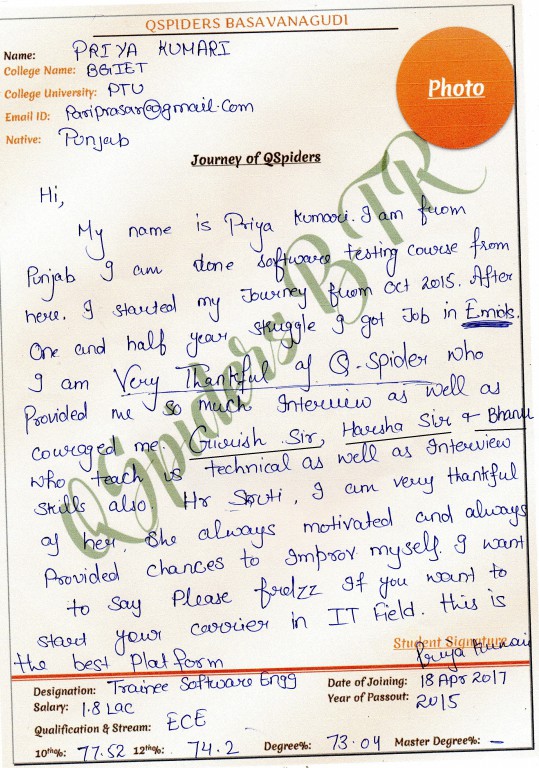 QSPIDERS BASAVANAGUDI
Name: PRIYA KUMARI
College Name: BGIET
College University: PTU
Email ID: Pariprasar@gmail.com
Native: Punjab
Photo
Journey of QSpiders
Hi,
My name is Priya Kumari. I am from
Punjab I am done software testing course from
here. I started my Journey from Oct 2015. After
One and half year struggle I got Job in Emids.
I am Very Thankful of Q-Spider who
Provided me so much Interview as well as
couraged me. Girish Sir, Harsha Sir & Bhanu
who teach us technical as well as Interview
skills also. Hr Sruti, I am very thankful
of her, She always motivated and always
Provided chances to Improv myself. I want
to say Please frdzz If you want to
start your carrier in IT Field. this is
the best Platform
Student Signature
Priya Kumari
Designation: Trainee Software Engg
Date of Joining: 18 Apr 2017
Salary: 1.8 Lac
Year of Passout: 2015
Qualification & Stream: ECE
10th%: 77.52 12th%: 74.2 Degree%: 73.04 Master Degree%: -
QSpiders BTR